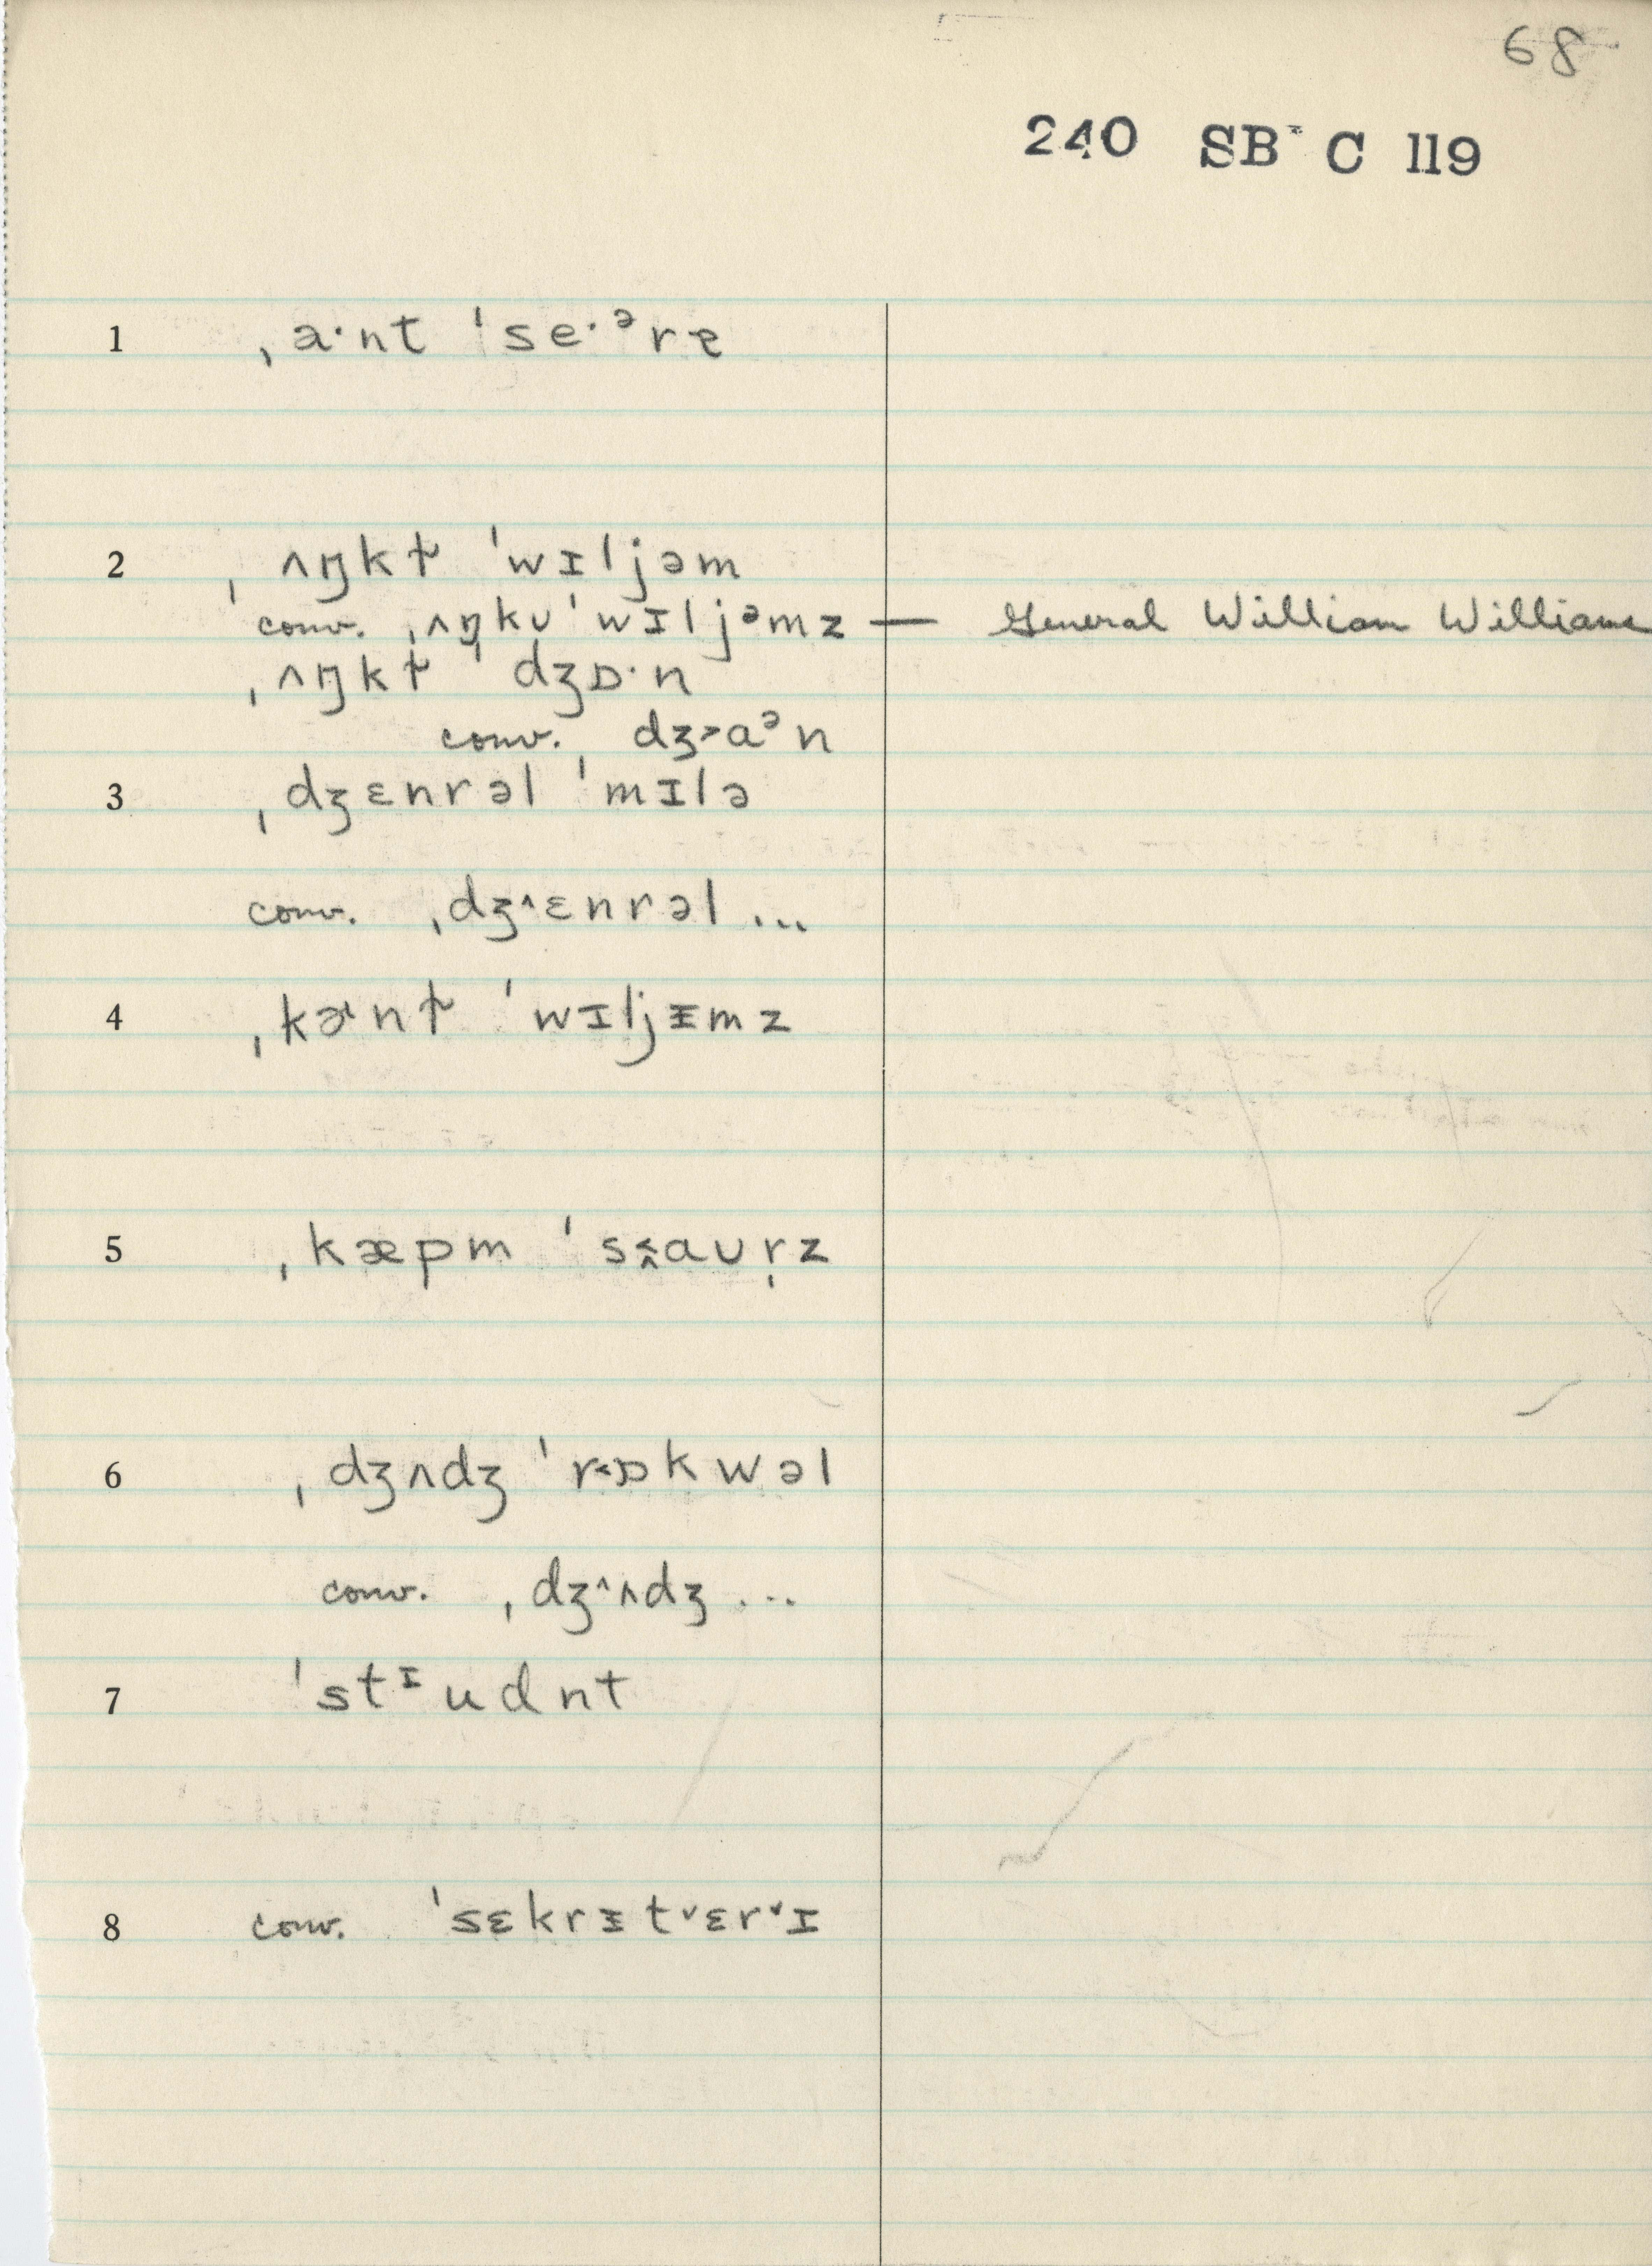 68
240 SB C 119
1 ˌa·nt ˈse·ᵊrɐ
2 ˌʌŋkɫ ˈwɪljəm
conv. ˌʌŋkʊ ˈwɪljᵊmz — General William Williams
ˌʌŋkɫ ˈdʒɒ·n
conv. ˌdʒ˃aᵊn
3 ˌdʒɛnrəl ˈmɪlə
conv. ˌdʒ^ɛnrəl ...
4 ˌkɚnɫ ˈwɪljɪ̵mz
5 ˌkæpm ˈsaʊr̩z
6 ˌdʒʌdʒ ˈr˂ɒkwəl
conv. ˌdʒ^ʌdʒ ...
7 ˈstᶦudnt
8 conv. ˈsɛkrɪ̵t˅ɛr˅ɪ